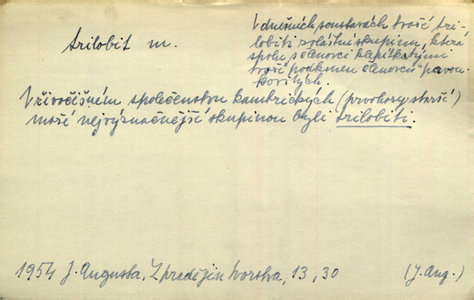 trilobit m.
V dnešních soustavách tvoří tri-
lobiti zvláštní skupinu, která
spolu s členovci klepítkatými
tvoří podkmen členovců pavou-
kovitých.
V živočišném společenstvu kambrických (prvohory starší)
moří nejvýznačnější skupinou byli trilobiti.
1954 J. Augusta, Z pradějin tvorstva, 13, 30 (J. Aug.)